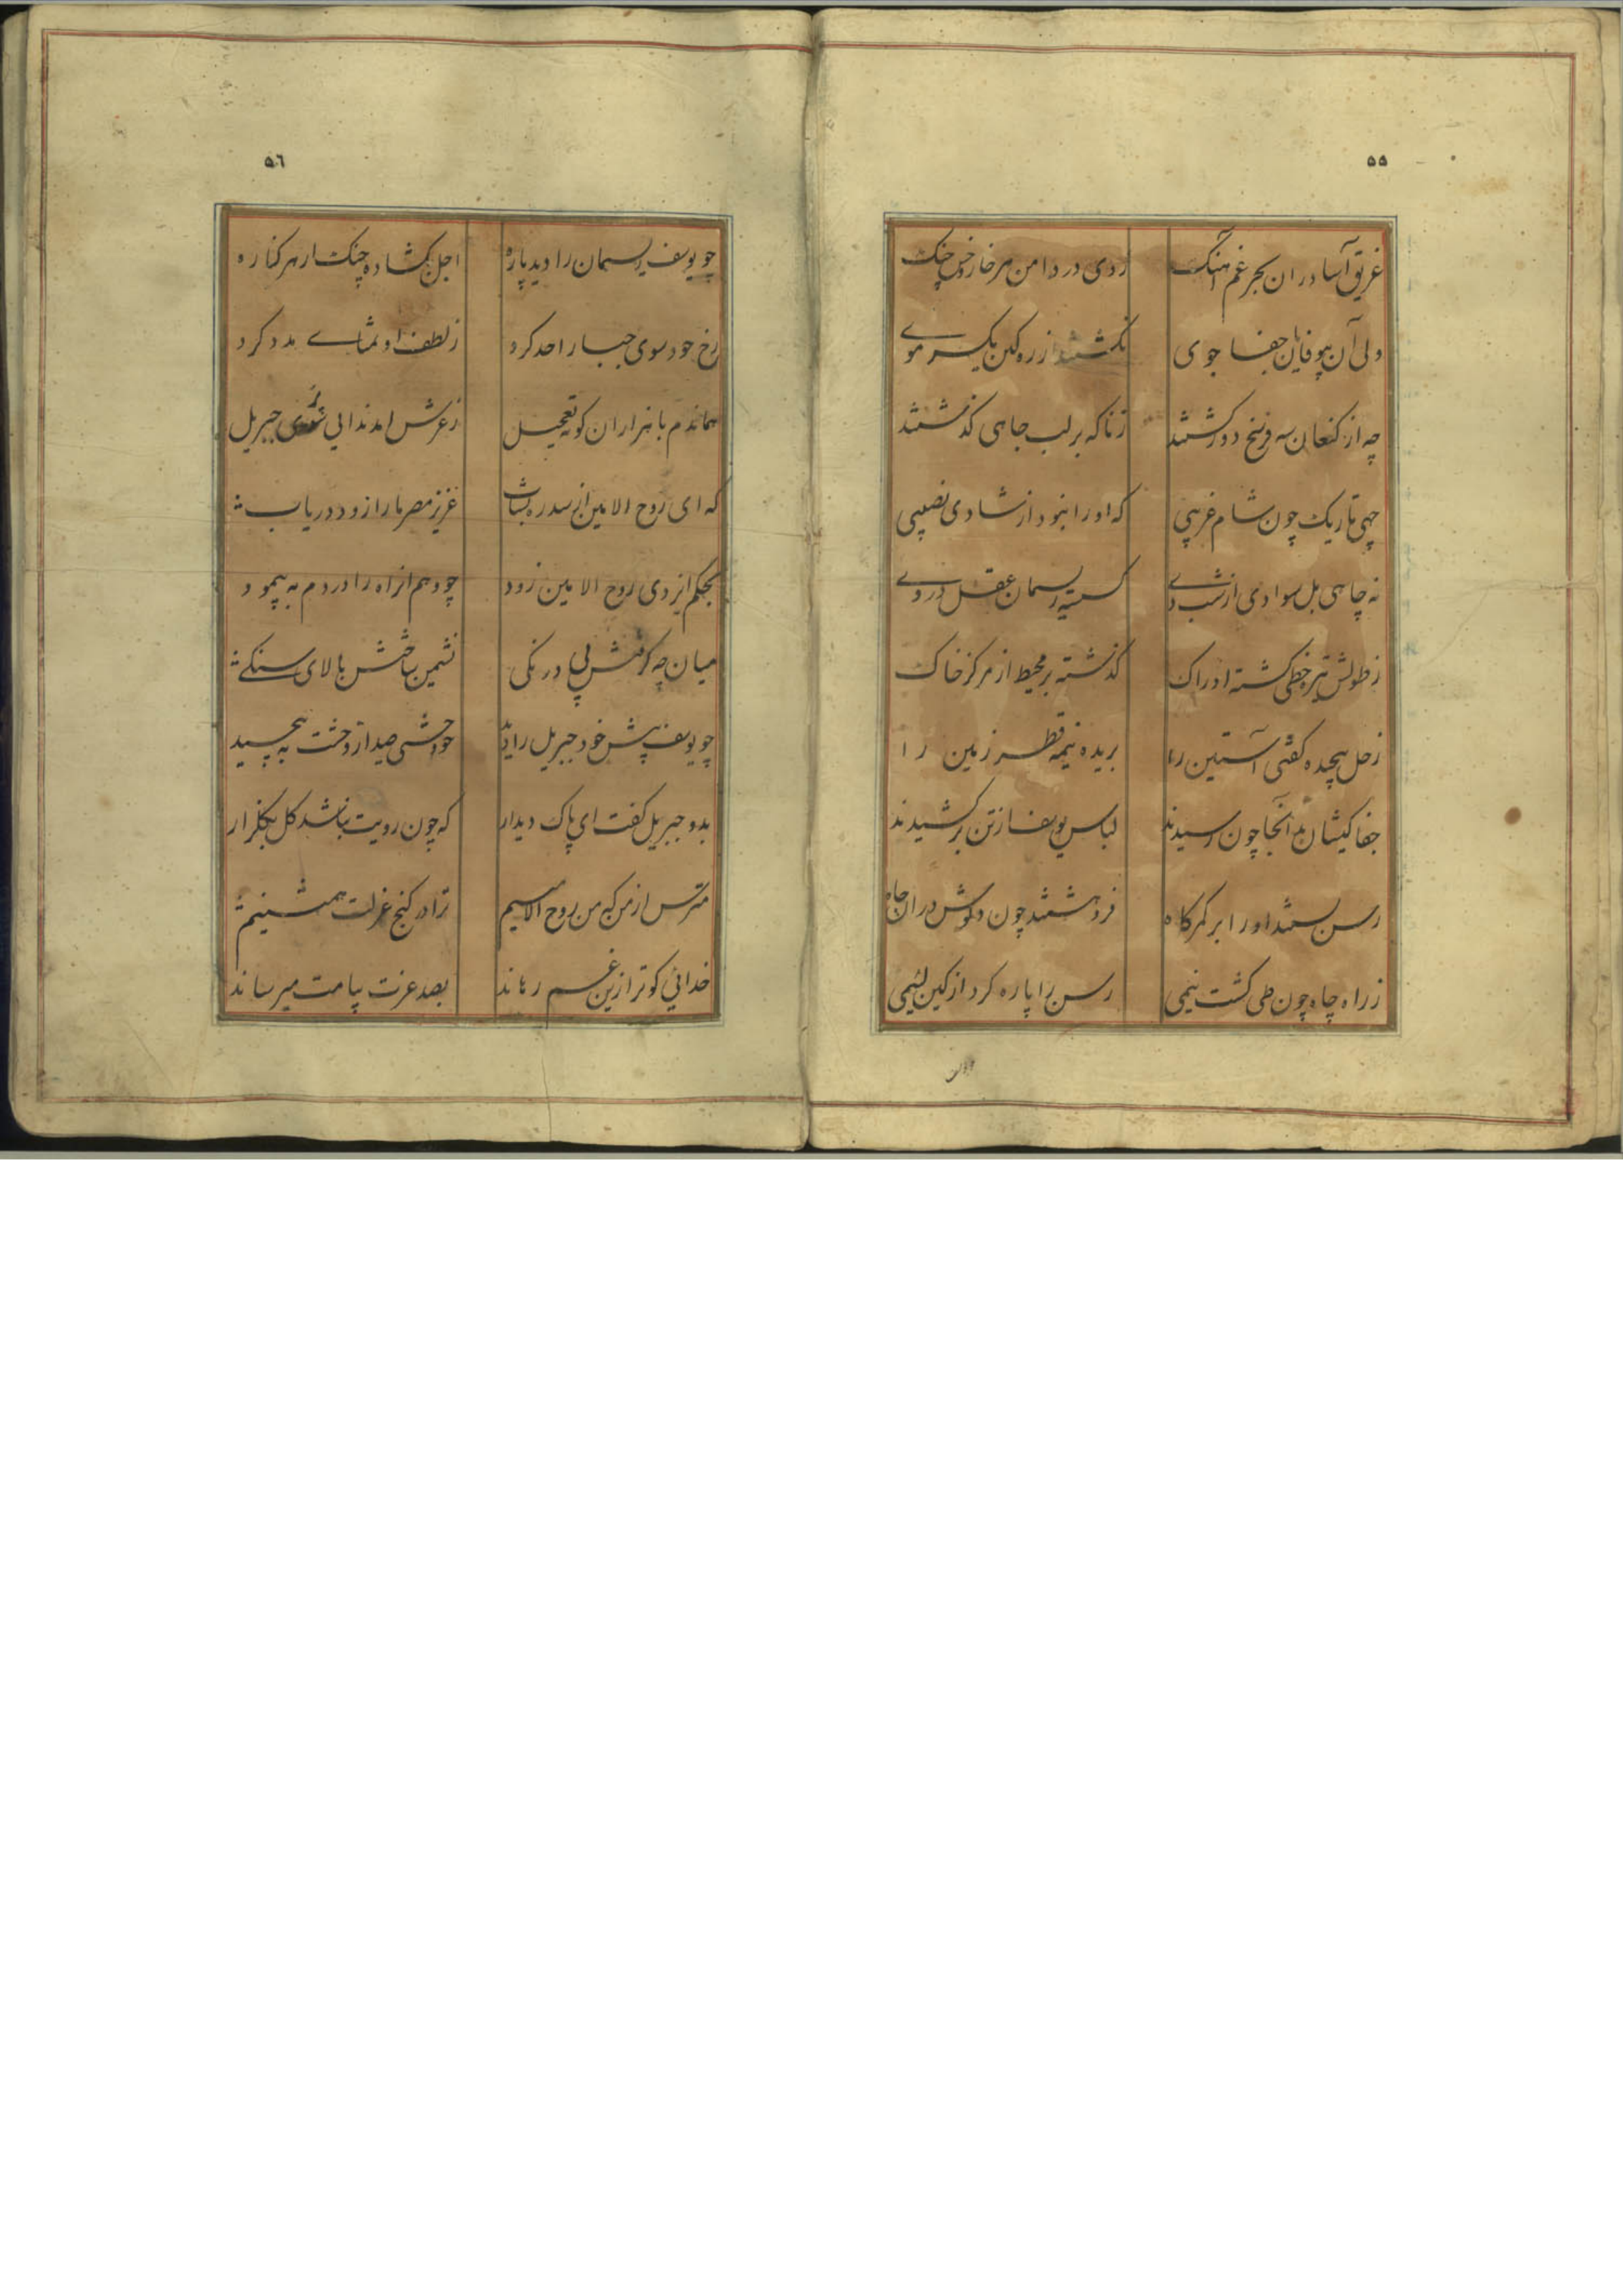 ۵۵
غریق آسا در ان بحر غم آهنگ زدی در دامن هر خار و خس چنگ
ولی آن بیوفایان جفا جوی نکشتند از ره کین یکسر موے
چه از کنعان سه فرسخ دور کشتند زناکه بر لب چاهی کذشتند
چهی تاریک چون شام غریبی که او را نبود از شادی نصیبی
نه چاهی بل سوادی از شب دے کسسته ریسمان عقل در وے
ز طولش تیر خطی کشته ادراک کذشته بر محیط از مرکز خاک
زحل پیچیده کفتی آستین را بریده نیمه قطر زمین را
جفا کیشان بد آنجا چون رسیدند لباس یوسف از تن بر کشیدند
رسن بستند او را بر کمرکاه فرو هشتند چون دلوش در ان چاه
ز راه چاه چون طی کشت نیمی رسن را پاره کرد از کین لئیمی
۵٦
چو یوسف ریسمان را دید پاره اجل بکشاده چنک از هر کناره
رخ خود سوی جبار احد کرد ز لطف او تمناے مدد کرد
هماندم با هزاران کونه تعجیل ز عرش امد ندایی سوی جبریل
که ای روح الامین از سدره بشتاب عزیز مصر ما را زود دریاب
بحکم ایزدی روح الامین زود چو وهم انراه را در دم به پیمود
میان چه کرفتش بی درنکی نشمین ساختش بالای سنکے
چو یوسف پیش خود جبریل را دید خودشی صید از وحشت به پیچید
بدو جبریل کفت ای پاک دیدار که چون رویت نباشد کل بکلزار
مترس از من که من روح الامینم ترا در کنج عزلت همنشینم
خدائی کو ترا زین غم رهاند بصد عزت بپامت میرساند